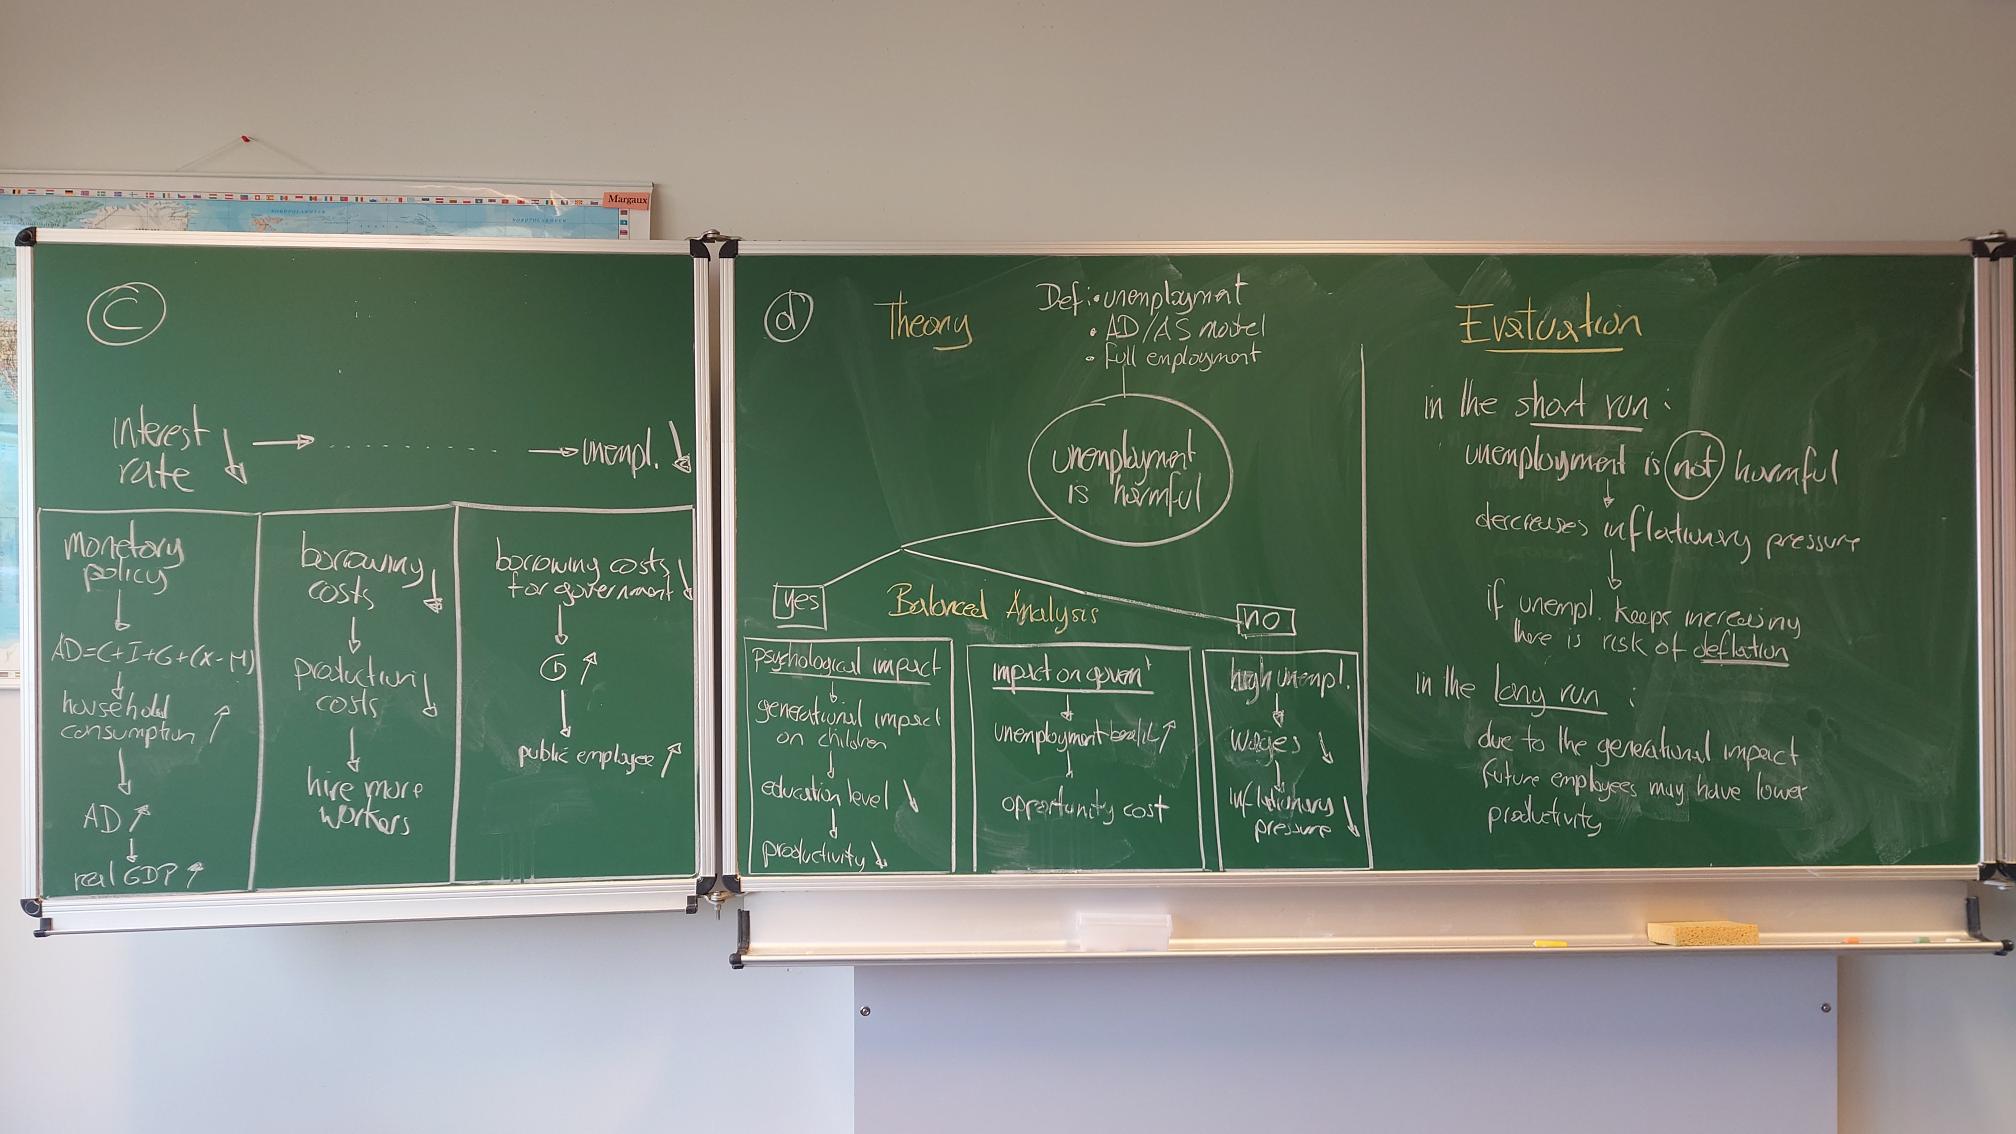 Margaux
NORDPOLARMEER
NORDPOLARMEER
C
interest ↓ → ......... → unempl. ↓
rate
monetory
policy
↓
AD=C+I+G+(X-M)
↓
household
consumption ↑
↓
AD ↑
↓
real GDP ↑
borrowing ↓
costs
↓
production ↓
costs
↓
hire more
workers
borrowing costs ↓
for government
↓
G ↑
↓
public employee ↑
d
Theory
Def: • unemployment
• AD/AS model
• full employment
unemployment
is harmful
yes
Balanced Analysis
no
psychological impact
↓
generational impact
on children
↓
education level ↓
↓
productivity ↓
impact on govern't
↓
unemployment benefit ↑
↓
opportunity cost
high unempl.
↓
wages ↓
↓
inflationary ↓
pressure
Evaluation
in the short run :
unemployment is not harmful
↓
dercreases inflationary pressure
↓
if unempl. keeps increasing
there is risk of deflation
in the long run :
due to the generational impact
future employees may have lower
productivity